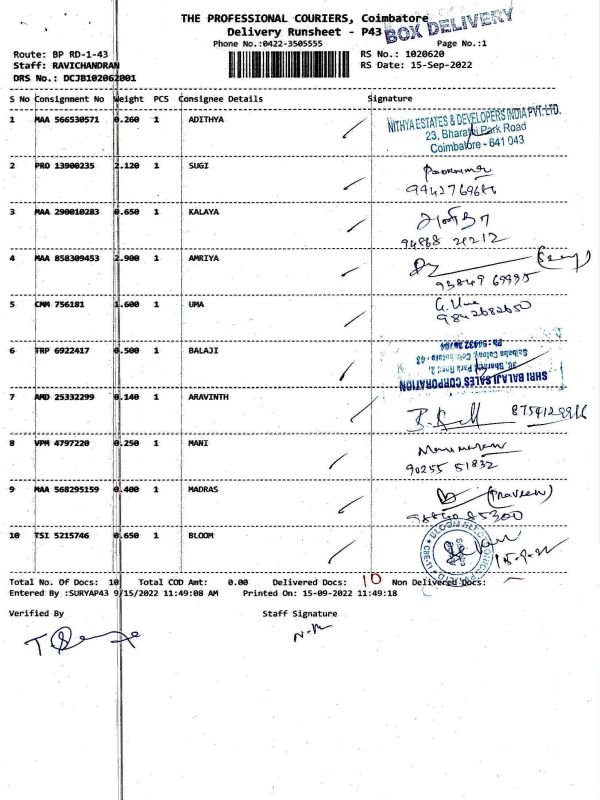 THE PROFESSIONAL COURIERS, Coimbatore
Delivery Runsheet - P43
BOX DELIVERY
Phone No.:0422-3505555
Page No.:1
Route: BP RD-1-43
RS No.: 1020620
Staff: RAVICHANDRAN
RS Date: 15-Sep-2022
DRS No.: DCJB102062001
S No Consignment No Weight PCS Consignee Details Signature
1 MAA 566530571 0.260 1 ADITHYA
NITHYA ESTATES & DEVELOPERS INDIA PVT. LTD.
23, Bharathi Park Road
Coimbatore - 641 043
2 PRO 13900235 2.120 1 SUGI
3 MAA 290010283 0.650 1 KALAYA
4 MAA 858309453 2.900 1 AMRIYA
93849 69995
5 CMM 756181 1.600 1 UMA
G. Uma
9842682650
6 TRP 6922417 0.500 1 BALAJI
SHRI BALAJI SALES CORPORATION
7 AMD 25332299 0.140 1 ARAVINTH
8 VPM 4797220 0.250 1 MANI
90255 51832
9 MAA 568295159 0.400 1 MADRAS
(Praveen)
10 TSI 5215746 0.650 1 BLOOM
15-9-22
Total No. Of Docs: 10 Total COD Amt: 0.00 Delivered Docs: 10 Non Delivered Docs:
Entered By :SURYAP43 9/15/2022 11:49:08 AM Printed On: 15-09-2022 11:49:18
Verified By Staff Signature